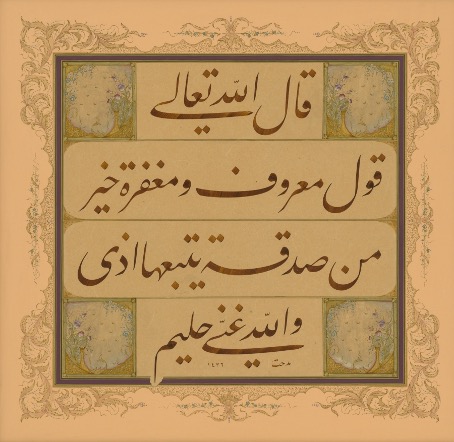 قال الله تعالى
قول معروف ومغفرة خير
من صدقة يتبعها اذى
والله غني حليم
١٤٣٦